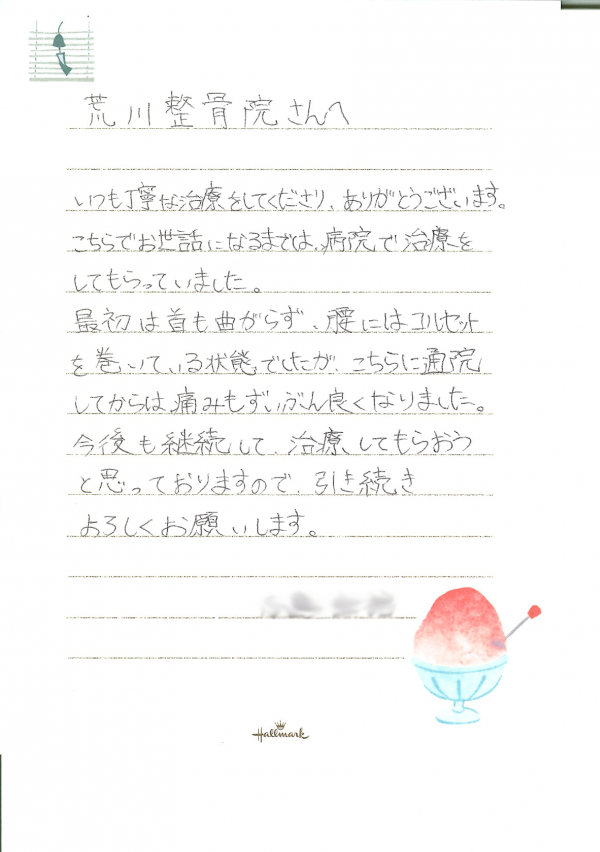 荒川整骨院さんへ
いつも丁寧な治療をしてくださり、ありがとうございます。
こちらでお世話になるまでは、病院で治療を
してもらっていました。
最初は首も曲がらず、腰にはコルセット
を巻いている状態でしたが、こちらに通院
してからは、痛みもずいぶん良くなりました。
今後も継続して、治療してもらおう
と思っておりますので、引き続き
よろしくお願いします。
Hallmark